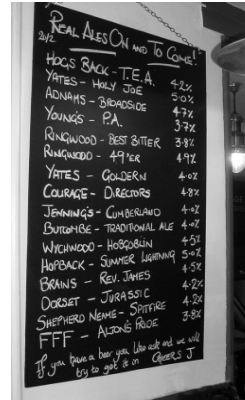 REAL ALES ON AND TO COME!
2012
HOGS BACK - T.E.A. 4.2%
YATES - HOLY JOE 5.0%
ADNAMS - BROADSIDE 4.7%
YOUNGS - P.A. 3.7%
RINGWOOD - BEST BITTER 3.8%
RINGWOOD - 49'ER 4.9%
YATES - GOLDERN 4.0%
COURAGE - DIRECTORS 4.8%
JENNING'S - CUMBERLAND 4.0%
BUTCOMBE - TRADITIONAL ALE 4.0%
WYCHWOOD - HOBGOBLIN 4.5%
HOPBACK - SUMMER LIGHTNING 5.0%
BRAINS - REV. JAMES 4.5%
DORSET - JURASSIC 4.2%
SHEPHERD NEAME - SPITFIRE 4.2%
FFF - ALTON'S PRIDE 3.8%
If you have a beer you like ask and we will
try to get it on CHEERS J